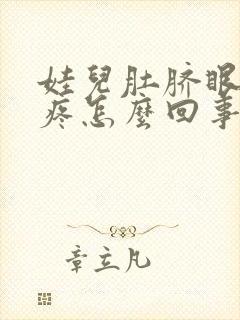 娃兒肚脐眼
疼怎麼回事
章立凡